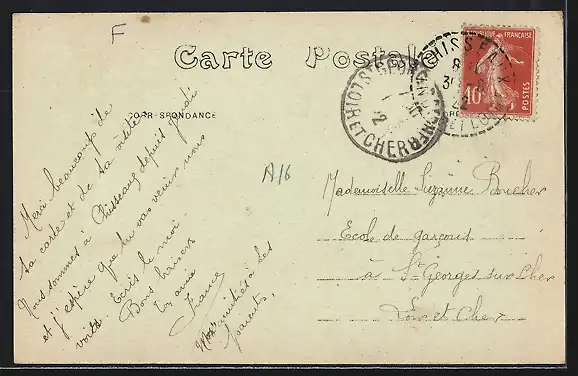 F
Carte Postale
CORRESPONDANCE
RÉPUBLIQUE FRANÇAISE
10c
POSTES
LOIR ET CHER
A/6
Merci beaucoup de
ta carte et de ta visite
Nous sommes à Chisseaux depuis jeudi
et j'espère que tu vas venir nous
voir. Ecris le moi.
Bons baisers
Ton amie
amitiés à tes
parents,
Mademoiselle Suzanne Boucher
Ecole de garçons
à St Georges sur Cher
Loir et Cher